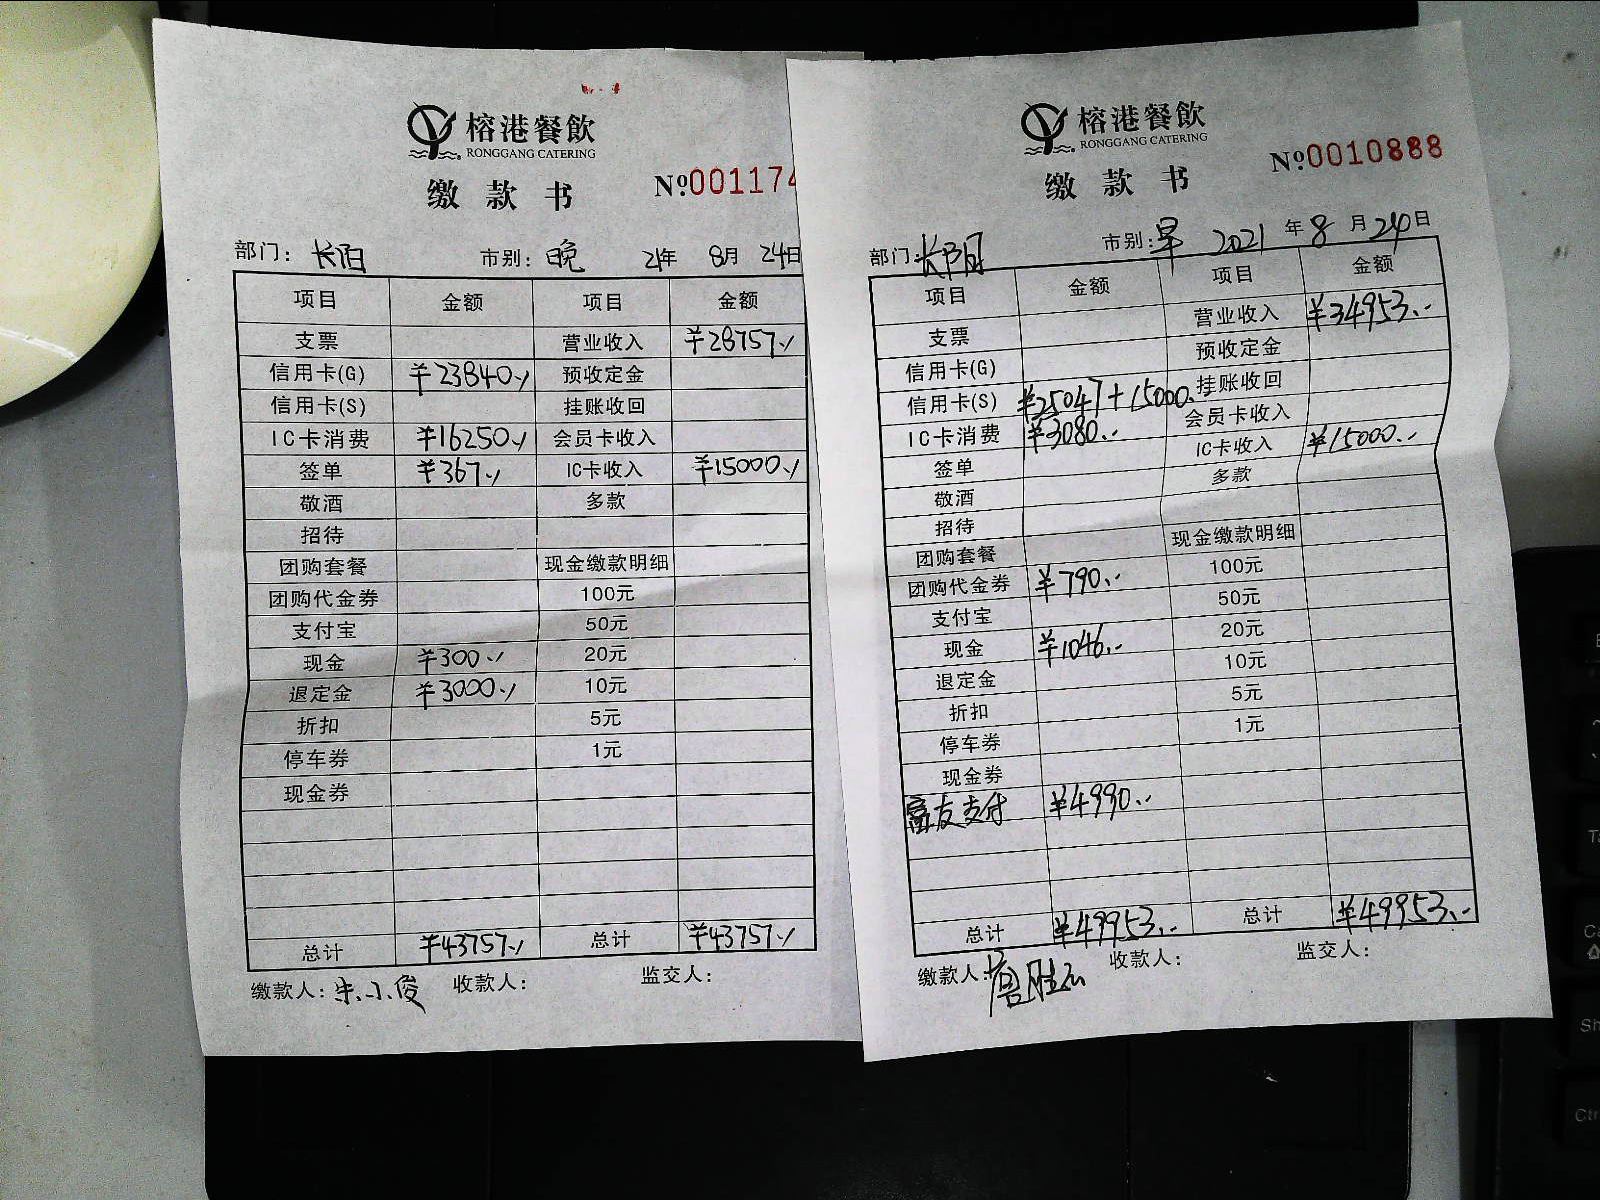 榕港餐飲
RONGGANG CATERING
缴款书
№001174
部门：长阳 市别：晚 21年 8月 24日
项目 金额 项目 金额
支票 营业收入 ¥28757.-
信用卡(G) ¥23840.- 预收定金
信用卡(S) 挂账收回
IC卡消费 ¥16250.- 会员卡收入
签单 ¥367.- IC卡收入 ¥15000.-
敬酒 多款
招待
团购套餐 现金缴款明细
团购代金券 100元
支付宝 50元
现金 ¥300.- 20元
退定金 ¥3000.- 10元
折扣 5元
停车券 1元
现金券
总计 ¥43757.- 总计 ¥43757.-
缴款人：朱小俊 收款人： 监交人：
榕港餐飲
RONGGANG CATERING
缴款书
№0010888
部门：长阳 市别：早 2021年8月24日
项目 金额 项目 金额
支票 营业收入 ¥34953.-
信用卡(G) 预收定金
信用卡(S) ¥25047+15000.- 挂账收回
IC卡消费 ¥3080.- 会员卡收入
签单 IC卡收入 ¥15000.-
敬酒 多款
招待
团购套餐 现金缴款明细
团购代金券 ¥790.- 100元
支付宝 50元
现金 ¥1046.- 20元
退定金 10元
折扣 5元
停车券 1元
现金券
富友支付 ¥4990.-
总计 ¥49953.- 总计 ¥49953.-
缴款人： 收款人： 监交人：